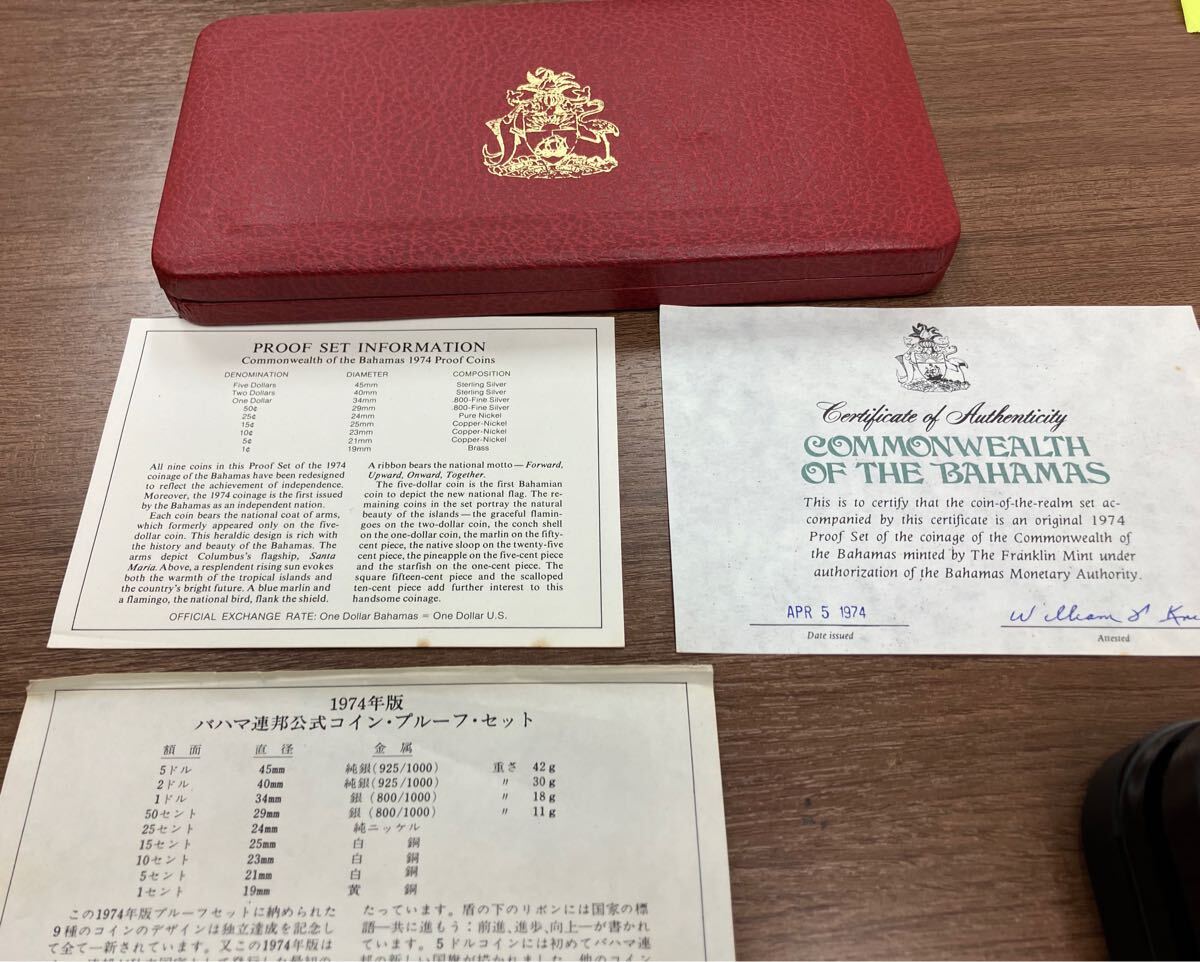 PROOF SET INFORMATION
Commonwealth of the Bahamas 1974 Proof Coins
DENOMINATION DIAMETER COMPOSITION
Five Dollars 45mm Sterling Silver
Two Dollars 40mm Sterling Silver
One Dollar 34mm .800-Fine Silver
50¢ 29mm .800-Fine Silver
25¢ 24mm Pure Nickel
15¢ 25mm Copper-Nickel
10¢ 23mm Copper-Nickel
5¢ 21mm Copper-Nickel
1¢ 19mm Brass
All nine coins in this Proof Set of the 1974
coinage of the Bahamas have been redesigned
to reflect the achievement of independence.
Moreover, the 1974 coinage is the first issued
by the Bahamas as an independent nation.
Each coin bears the national coat of arms,
which formerly appeared only on the five-
dollar coin. This heraldic design is rich with
the history and beauty of the Bahamas. The
arms depict Columbus's flagship, Santa
Maria. Above, a resplendent rising sun evokes
both the warmth of the tropical islands and
the country's bright future. A blue marlin and
a flamingo, the national bird, flank the shield.
A ribbon bears the national motto — Forward,
Upward, Onward, Together.
The five-dollar coin is the first Bahamian
coin to depict the new national flag. The re-
maining coins in the set portray the natural
beauty of the islands — the graceful flamin-
goes on the two-dollar coin, the conch shell
on the one-dollar coin, the marlin on the fifty-
cent piece, the native sloop on the twenty-five
cent piece, the pineapple on the five-cent piece
and the starfish on the one-cent piece. The
square fifteen-cent piece and the scalloped
ten-cent piece add further interest to this
handsome coinage.
OFFICIAL EXCHANGE RATE: One Dollar Bahamas = One Dollar U.S.
Certificate of Authenticity
COMMONWEALTH
OF THE BAHAMAS
This is to certify that the coin-of-the-realm set ac-
companied by this certificate is an original 1974
Proof Set of the coinage of the Commonwealth of
the Bahamas minted by The Franklin Mint under
authorization of the Bahamas Monetary Authority.
APR 5 1974 William
Date issued Attested
1974年版
バハマ連邦公式コイン・プルーフ・セット
額面 直径 金属
5ドル 45mm 純銀(925/1000) 重さ 42g
2ドル 40mm 純銀(925/1000) 〃 30g
1ドル 34mm 銀(800/1000) 〃 18g
50セント 29mm 銀(800/1000) 〃 11g
25セント 24mm 純ニッケル
15セント 25mm 白銅
10セント 23mm 白銅
5セント 21mm 白銅
1セント 19mm 黄銅
この1974年版プルーフセットに納められた
9種のコインのデザインは独立達成を記念し
て全て一新されています。又この1974年版は
たっています。盾の下のリボンには国家の標
語―共に進もう：前進、進歩、向上―が書かれ
ています。5ドルコインには初めてバハマ連